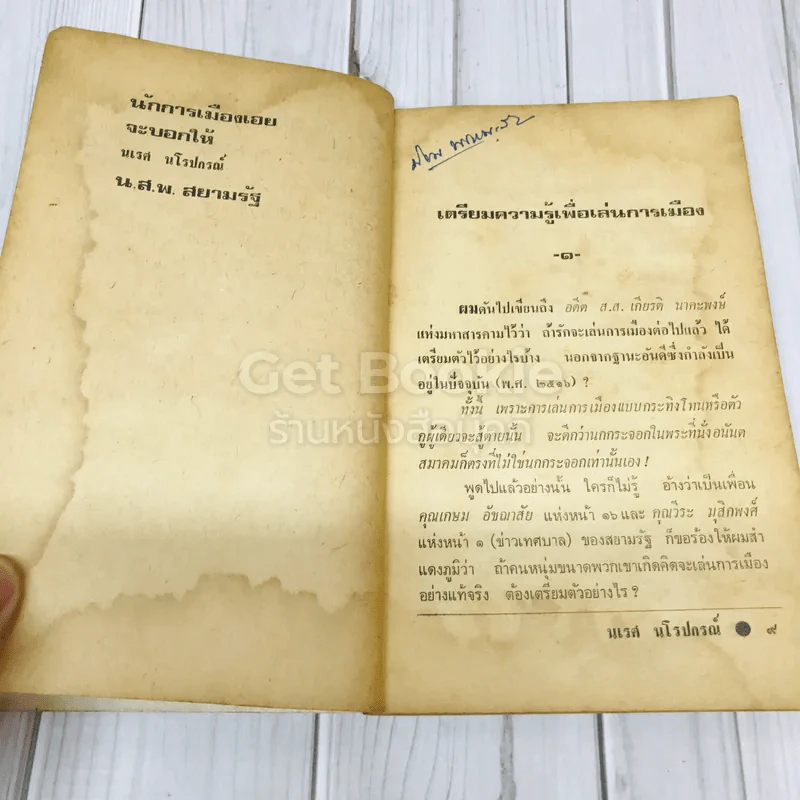 นักการเมืองเอย
จะบอกให้
นเรศ นโรปกรณ์
น.ส.พ. สยามรัฐ
เตรียมความรู้เพื่อเล่นการเมือง
-๑-
ผมดันไปเขียนถึง อดีต ส.ส. เกียรติ นาคะพงษ์
แห่งมหาสารคามไว้ว่า ถ้ารักจะเล่นการเมืองต่อไปแล้ว ได้
เตรียมตัวไว้อย่างไรบ้าง นอกจากฐานะอันดีซึ่งกำลังเป็น
อยู่ในปัจจุบัน (พ.ศ. ๒๕๑๖) ?
ทั้งนี้ เพราะการเล่นการเมืองแบบกระทิงโทนหรือตัว
กูผู้เดียวจะสู้ตายนั้น จะดีกว่านกกระจอกในพระที่นั่งอนันต
สมาคมก็ตรงที่ไม่ใช่นกกระจอกเท่านั้นเอง !
พูดไปแล้วอย่างนั้น ใครก็ไม่รู้ อ้างว่าเป็นเพื่อน
คุณเกษม อัชฌาสัย แห่งหน้า ๑๖ และ คุณวีระ มุสิกพงศ์
แห่งหน้า ๑ (ข่าวเทศบาล) ของสยามรัฐ ก็ขอร้องให้ผมสำ
แดงภูมิว่า ถ้าคนหนุ่มขนาดพวกเขาเกิดคิดจะเล่นการเมือง
อย่างแท้จริง ต้องเตรียมตัวอย่างไร ?
นเรศ นโรปกรณ์ ● ๙
Get Bookie
ร้านหนังสือมุกดิ